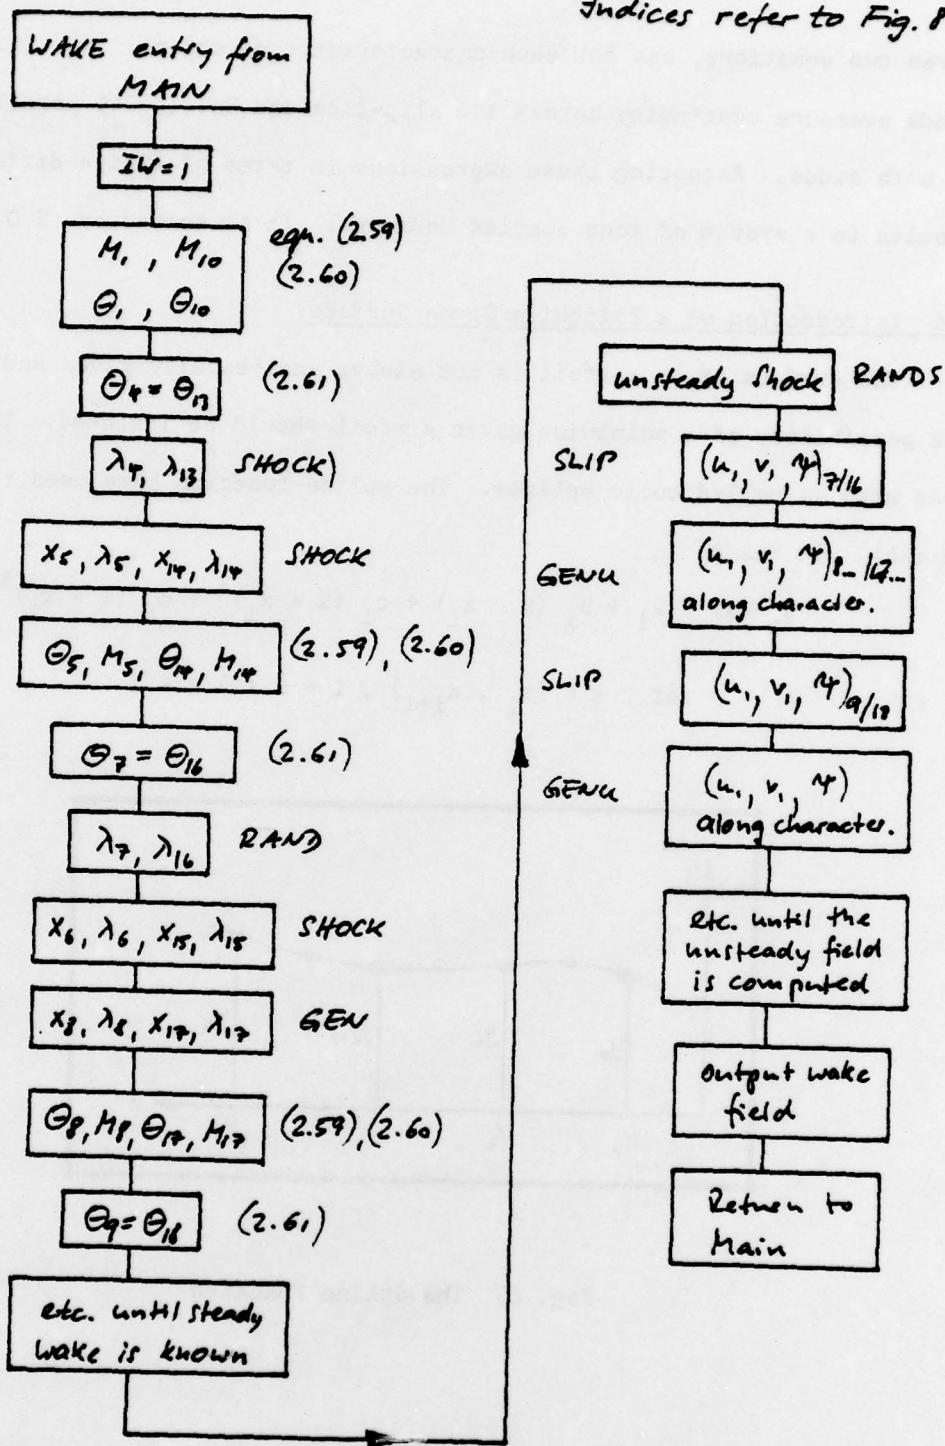 Indices refer to Fig. 8
WAKE entry from
MAIN
IW=1
M₁, M₁₀ eqn. (2.59)
Θ₁, Θ₁₀ (2.60)
Θ₄ = Θ₁₃ (2.61)
λ₄, λ₁₃ SHOCK)
x₅, λ₅, x₁₄, λ₁₄ SHOCK
Θ₅, M₅, Θ₁₄, M₁₄ (2.59), (2.60)
Θ₇ = Θ₁₆ (2.61)
λ₇, λ₁₆ RAND
x₆, λ₆, x₁₅, λ₁₅ SHOCK
x₈, λ₈, x₁₇, λ₁₇ GEN
Θ₈, M₈, Θ₁₇, M₁₇ (2.59), (2.60)
Θ₉ = Θ₁₈ (2.61)
etc. until steady
wake is known
unsteady shock RANDS
SLIP (u₁, v₁, Ψ)₇/₁₆
GENU (u₁, v₁, Ψ)₈.../₁₇...
along character.
SLIP (u₁, v₁, Ψ)₉/₁₈
GENU (u₁, v₁, Ψ)
along character.
etc. until the
unsteady field
is computed
Output wake
field
Return to
Main